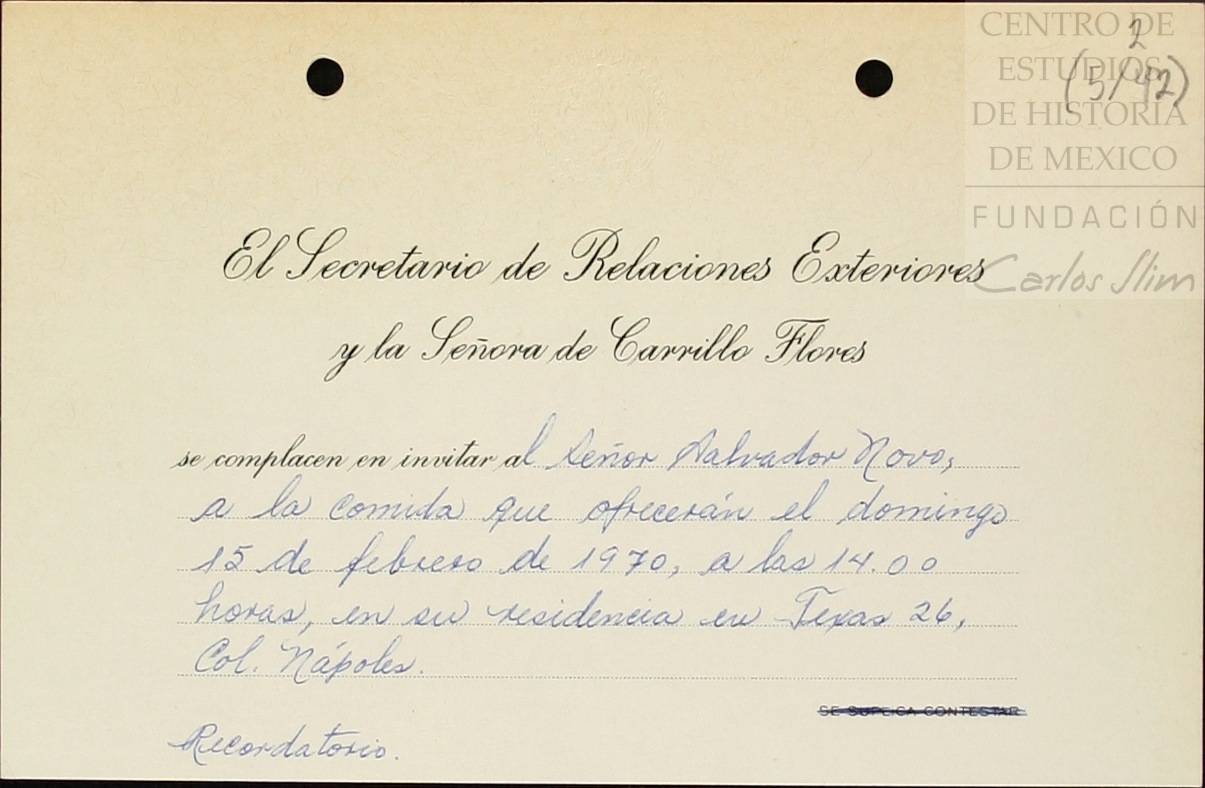 CENTRO DE
ESTUDIOS
DE HISTORIA
DE MEXICO
FUNDACIÓN
Carlos Slim
2
(5/42)
El Secretario de Relaciones Exteriores
y la Señora de Carrillo Flores
se complacen en invitar al Señor Salvador Novo,
a la comida que ofrecerán el domingo
15 de febrero de 1970, a las 14.00
horas, en su residencia en Texas 26,
Col. Nápoles.
SE SUPLICA CONTESTAR
Recordatorio.